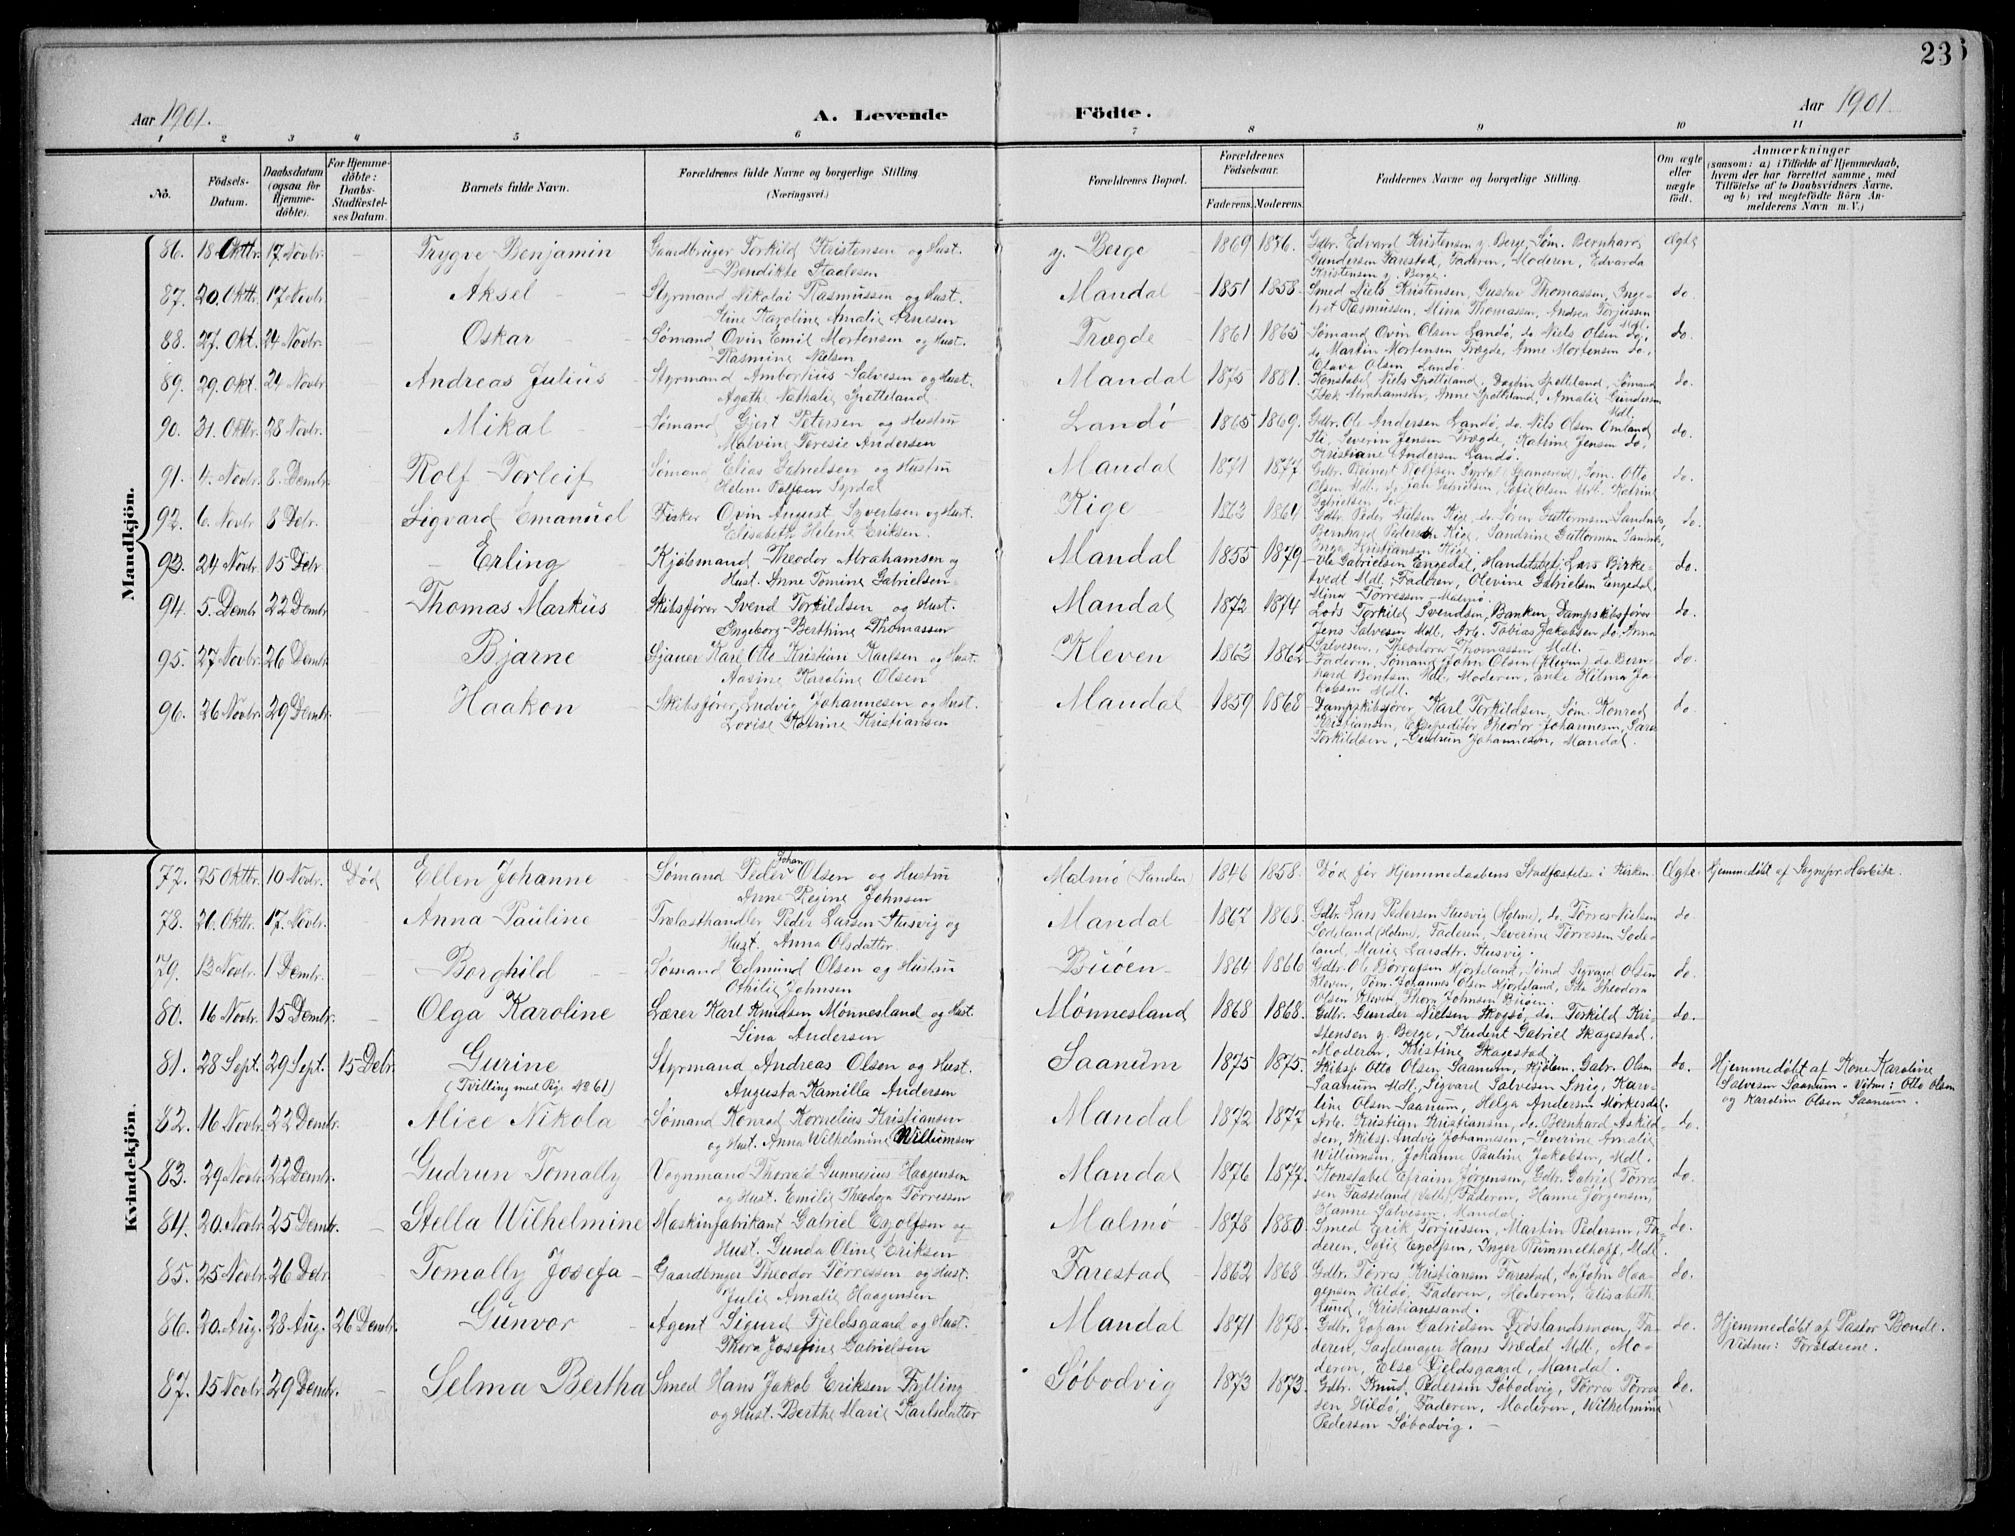 23
Aar 1901.
A. Levende Födte.
Aar 1901.
1 2 3 4 5 6 7 8 9 10 11
No.
Födsels-Datum.
Daabsdatum (ogsaa for Hjemme-döbte).
For Hjemme-döbte: Daabs-Stadfæstel-ses Datum.
Barnets fulde Navn.
Forældrenes fulde Navne og borgerlige Stilling. (Næringsvei.)
Forældrenes Bopæl.
Forældrenes Födselsaar.
Faderens. Moderens.
Faddernes Navne og borgerlige Stilling.
Om ægte eller uægte födt.
Anmærkninger
(saasom: a) i Tilfælde af Hjemmedaab, hvem der har forrettet samme, med Tilföielse af to Daabsvidners Navne, og b) ved uægtefödte Börn An-melderens Navn m. V.)
Mandkjön.
86. 18 Oktbr. 17 Novbr. Trygve Benjamin Gaardbruger Torkild Kristensen og Hust. y. Berge 1869 1876. Gdbr. Edvard Kristensen y. Berge, Søm. Bernhard Ægte
Bendikte Staalesen Gundersen Farestad, Faderen, Moderen, Edvarda
Kristensen y. Berge.
87. 20. Oktbr. 17 Novbr. Aksel Styrmand Nikolai Rasmussen og Hust. Mandal 1851 1858. Smed Niels Kristensen, Gustav Thomassen, Inge- do.
Karoline Amalie Arnesen bret Rasmussen, Mina Thomassen, Andrea Torjussen
Mdl.
88. 27. Okt. 24 Novbr. Oskar Sømand Ovin Emil Mortensen og Hust. Trægde 1861 1863 Sømand Ovin Olsen Landø, do Niels Olsen do, do.
Rasmine Nielsen do Martin Mortensen Trægde, Anne Mortensen do,
Olava Olsen Landø.
89. 29. Okt. 24 Novbr. Andreas Julius Styrmand Ambortius Salvesen og Hust. Mandal 1875 1881. Konstabel Niels Spetteland, Sømand do.
Agathe Nathalie Spetteland Isak Abrahamsen, Anne Spetteland, Amalie Gundersen
Mdl.
90. 31. Oktbr. 28 Novbr. Mikal Sømand Gjert Petersen og Hustru Landø 1865 1869. Gdbr. Ole Andersen Landø, do. Nils Olsen Omland do.
Malvine Teresie Andersen Severin Jensen Trægde, Katrine Jensen do,
Kristiane Andersen Landø.
91. 4. Novbr. 8. Dembr. Rolf Torleif Sømand Elias Gabrielsen og Hustru Mandal 1871 1877 Gdbr. Reinert Rolfsen Syrdal, Søm. Otto do.
Helene Rolfsen Syrdal Olsen Mdl, do Jan Gabrielsen, Sofie Olsen Mdl. Katrine
Gabrielsen do.
92. 6. Novbr. 8 Debr. Sigvard Emanuel Fisker Ovin August Syvertsen og Hust. Kige 1863 1864 Gdbr. Peder Nielsen Kige, do. Søren Guttormsen Sandnes, do.
Elisabeth Helene Eriksen. Bernhard Pedersen Kige, Sandrine Guttormsen
Inga Kristiansen Kige.
93. 24 Novbr. 15 Debr. Erling Kjøbmand Theodor Abrahamsen og Mandal 1855 1879. Ole Gabrielsen Engedal, Handelsbetj. Lars Birke- do.
Hust. Anne Tomine Gabrielsen tvedt Mdl, Faderen, Olevine Gabrielsen Engedal
Mina Tørressen Malmø.
94. 5. Dembr 22 Dembr. Thomas Markus Skibsfører Svend Torkildsen og Hust. Mandal 1872 1874 Lods Torkild Svendsen, Banken, Dampskibsfører do.
Ingeborg Berthine Thomassen Jens Salvesen Mdl, Arb. Tobias Jakobsen do, Anna
Salvesen, Theodora Thomassen Mdl.
95. 27 Novbr. 26 Dembr. Bjarne Sjauer Karl Otto Kristian Karlsen og Hust. Kleven 1863 1862 Faderen, Sømand John Olsen (Kleven), do. Bern- do.
Aasine Karoline Olsen hard Bentsen Mdl, Moderen, Enke Hilma Ja-
kobsen Mdl.
96. 26 Novbr. 29 Dembr. Haakon Skibsfører Ludvig Johannesen og Hust. Mandal 1859 1868 Dampskibsfører Karl Torkildsen, Søm. Konrad do.
Lovise Katrine Kristiansen Kristiansen, Expeditør Theodor Johannesen, Sara
Torkildsen, Gudrun Johannesen, Mandal.
Kvindekjön.
77. 25 Oktbr. 10 Novbr. Død Ellen Johanne Sømand Peder Johan Olsen og Hustru Malmø (Sanden) 1846 1858. Død før Hjemmedaabens Stadfæstelse i Kirken. Ægte. Hjemmedøbt af Sognepr. Harbitz.
Anne Regine Johnsen
78. 20. Oktbr. 17. Novbr. Anna Pauline Trælasthandler Peder Larsen Stusvig og Mandal 1867 1868. Gdbr. Lars Pedersen Stusvig (Holme), do. Tørres Nielsen do
Hust. Anna Olsdatter. Sodeland (Holme), Faderen, Severine Tørressen Sode-
land, Marie Larsdtr. Stusvig.
79. 13 Novbr. 1 Dembr. Borghild Sømand Edmund Olsen og Hustru Buøen 1864 1866 Gdbr. Ole Børresen Hjorteland, Sømd Sigvard Olsen do.
Othilie Johnsen Kleven, Søm. Johannes Olsen Hjorteland, Theodora
Olsen Kleven, Thora Johnsen Buøen.
80. 16 Novbr. 15 Dembr. Olga Karoline Lærer Karl Knudsen Mønnesland og Hust. Mønnesland 1868 1868. Gdbr. Gunder Nielsen Skogsø, do. Torkild Kri- do.
Sina Andersen stensen y. Berge, Student Gabriel Skagestad.
Moderen, Kristine Skagestad
81. 28 Sept. 29 Sept. 15 Debr. Gurine Styrmand Andreas Olsen og Hust. Saanum 1875 1875. Skibsf. Otto Olsen Saanum, Kjøbm. Gabr. Olsen do. Hjemmedøbt af Kone Karoline
(Tvilling med Pige No 61) Augusta Kamilla Andersen Saanum Mdl, Sigvard Salvesen Snig, Karo- Salvesen Saanum. Vidner: Otto Olsen
line Olsen Saanum, Helga Andersen Mørkesdal. og Karoline Olsen Saanum.
82. 16 Novbr. 22 Dembr. Alice Nikola Sømand Konrad Kornelius Kristiansen Mandal 1872 1877 Arb. Kristian Kristiansen, do. Bernhard Askild- do.
og Hust. Anna Wilhelmine Willumsen sen, Skibsf. Ludvig Johannesen, Severine Amalie
Willumsen, Johanne Pauline Jakobsen, Mdl.
83. 29 Novbr. 22 Dembr. Gudrun Tomally Vognmand Thorvald Gunnesius Haagensen Mandal 1876 1877. Konstabel Efraim Jørgensen, Gdbr. Gabriel Tørres- do.
og Hust. Emilie Theodora Tørressen sen Fasseland, Faderen, Hanne Jørgensen,
Hanne Salvesen, Mandal.
84. 20. Novbr. 25 Dembr. Stella Wilhelmine Maskinfabrikant Gabriel Egolfsen og Malmø 1878 1880. Smed Erik Torjussen, Martin Pedersen, Fa- do.
Hust. Gunda Oline Eriksen deren, Sofie Egolfsen, Inger Rummelhoff, Mdl.
85. 25 Novbr. 26 Debr. Tomally Josefa Gaardbruger Theodor Tørressen og Hust. Farestad 1862 1868. Gdbr. Tørres Kristiansen Farestad, do John Haa- do.
Julie Amalie Haagensen gensen Hildø, Faderen, Moderen, Elisabeth
Lund, Kristianssand.
86. 20 Aug. 28 Aug. 26 Dembr. Gunvor Agent Sigurd Fjeldsgaard og Hust. Mandal 1871 1878. Gdbr. Johan Gabrielsen Frøslandsmoen, Fa- do. Hjemmedøbt af Pastor Bonde.
Thora Josefine Gabrielsen deren, Sadelmager Hans Trædal Mdl, Mo- Vidner: Forældrene.
deren, Else Fjeldsgaard, Mandal.
87. 15 Novbr. 29 Dembr. Selma Bertha Smed Hans Jakob Eriksen Fylling Søbodvig 1873 1873. Gdbr. Knud Pedersen Søbodvig, Tørres Tørres- do.
og Hust. Berthe Marie Karlsdatter sen Hildø, Faderen, Moderen, Wilhelmine
Pedersen Søbodvig.